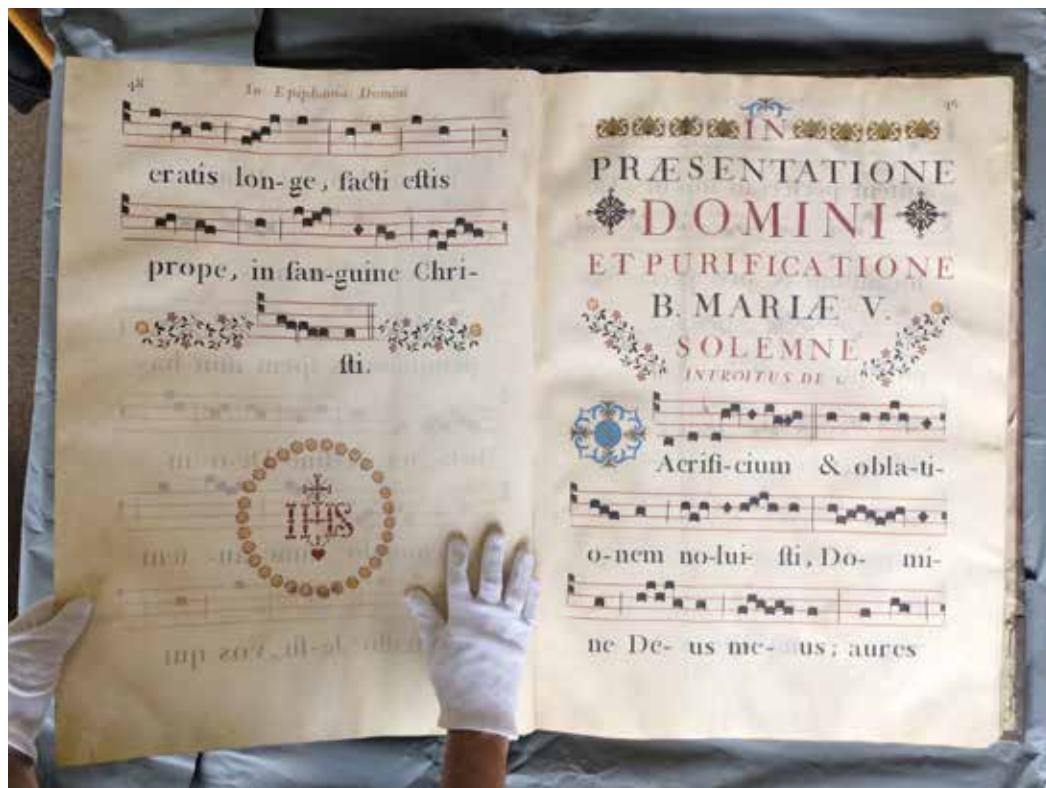 48
In Epiphania Domini
eratis lon-ge, facti eſtis
prope, in ſan-guine Chri-
ſti.
IHS
IN
PRÆSENTATIONE
DOMINI
ET PURIFICATIONE
B. MARIÆ V.
SOLEMNE
INTROITUS DE
S
Acrifi-cium & obla-ti-
o-nem no-lui- ſti, Do- mi-
ne De- us me- us; aures